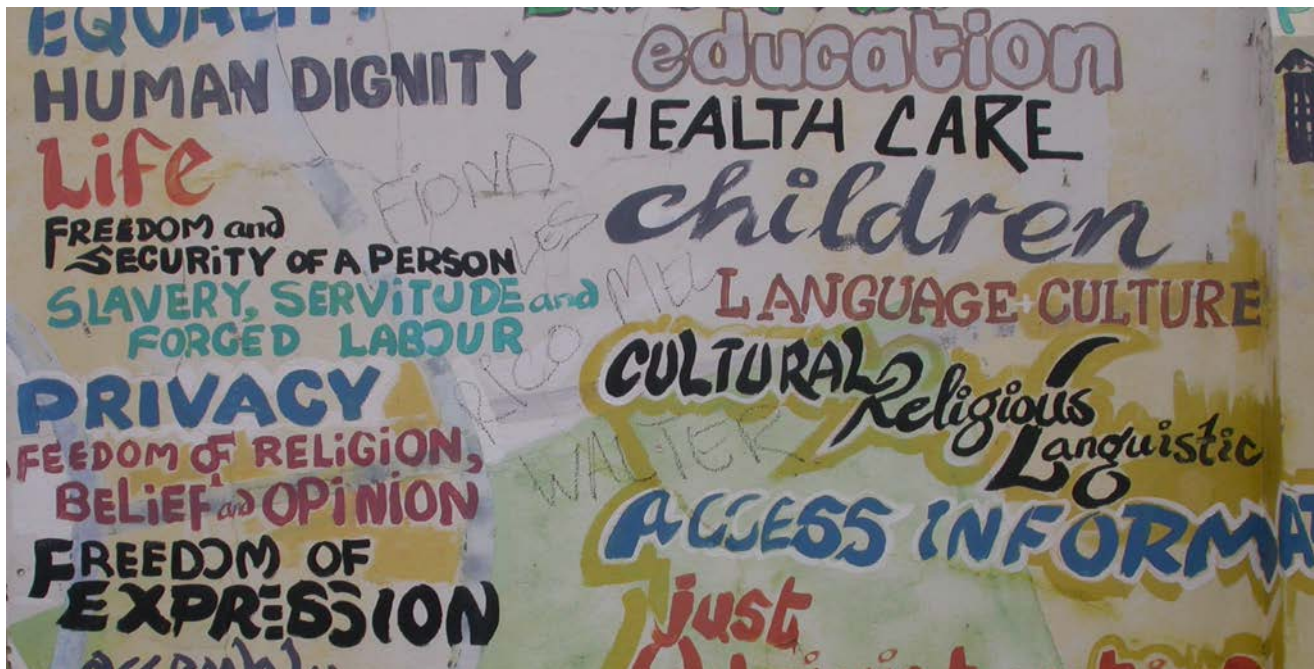 EQUALITY
HUMAN DIGNITY
Life
FREEDOM and
SECURITY OF A PERSON
SLAVERY, SERVITUDE and
FORGED LABOUR
PRIVACY
FEEDOM OF RELIGION,
BELIEF and OPINION
FREEDOM OF
EXPRESSION
FIONA
LES
RICO MEL
WALTER
education
HEALTH CARE
children
LANGUAGE + CULTURE
CULTURAL
Religious
Languistic
ACCESS INFORMA
just